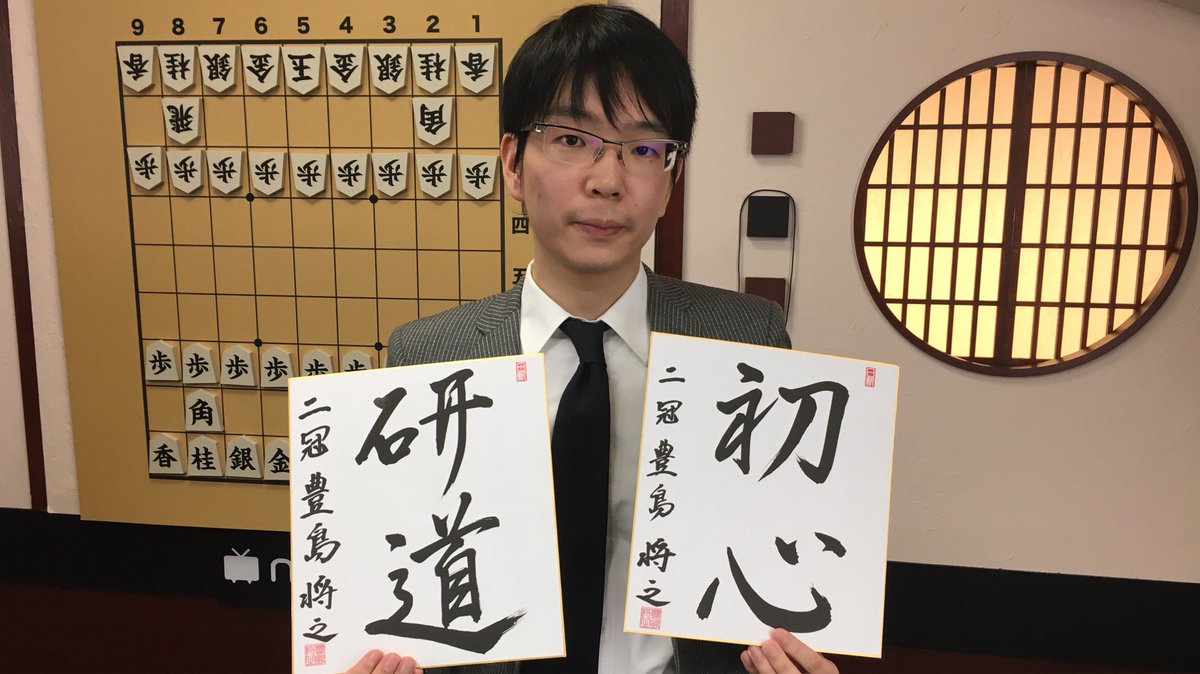 9 8 7 6 5 4 3 2 1
香 桂 銀 金 王 金 銀 桂 香
飛 角
歩 歩 歩 歩 歩 歩 歩 歩 歩
四
五
歩 歩 歩 歩 歩 歩
角
香 桂 銀 金
研道
二冠 豊島将之
初心
二冠 豊島将之
n